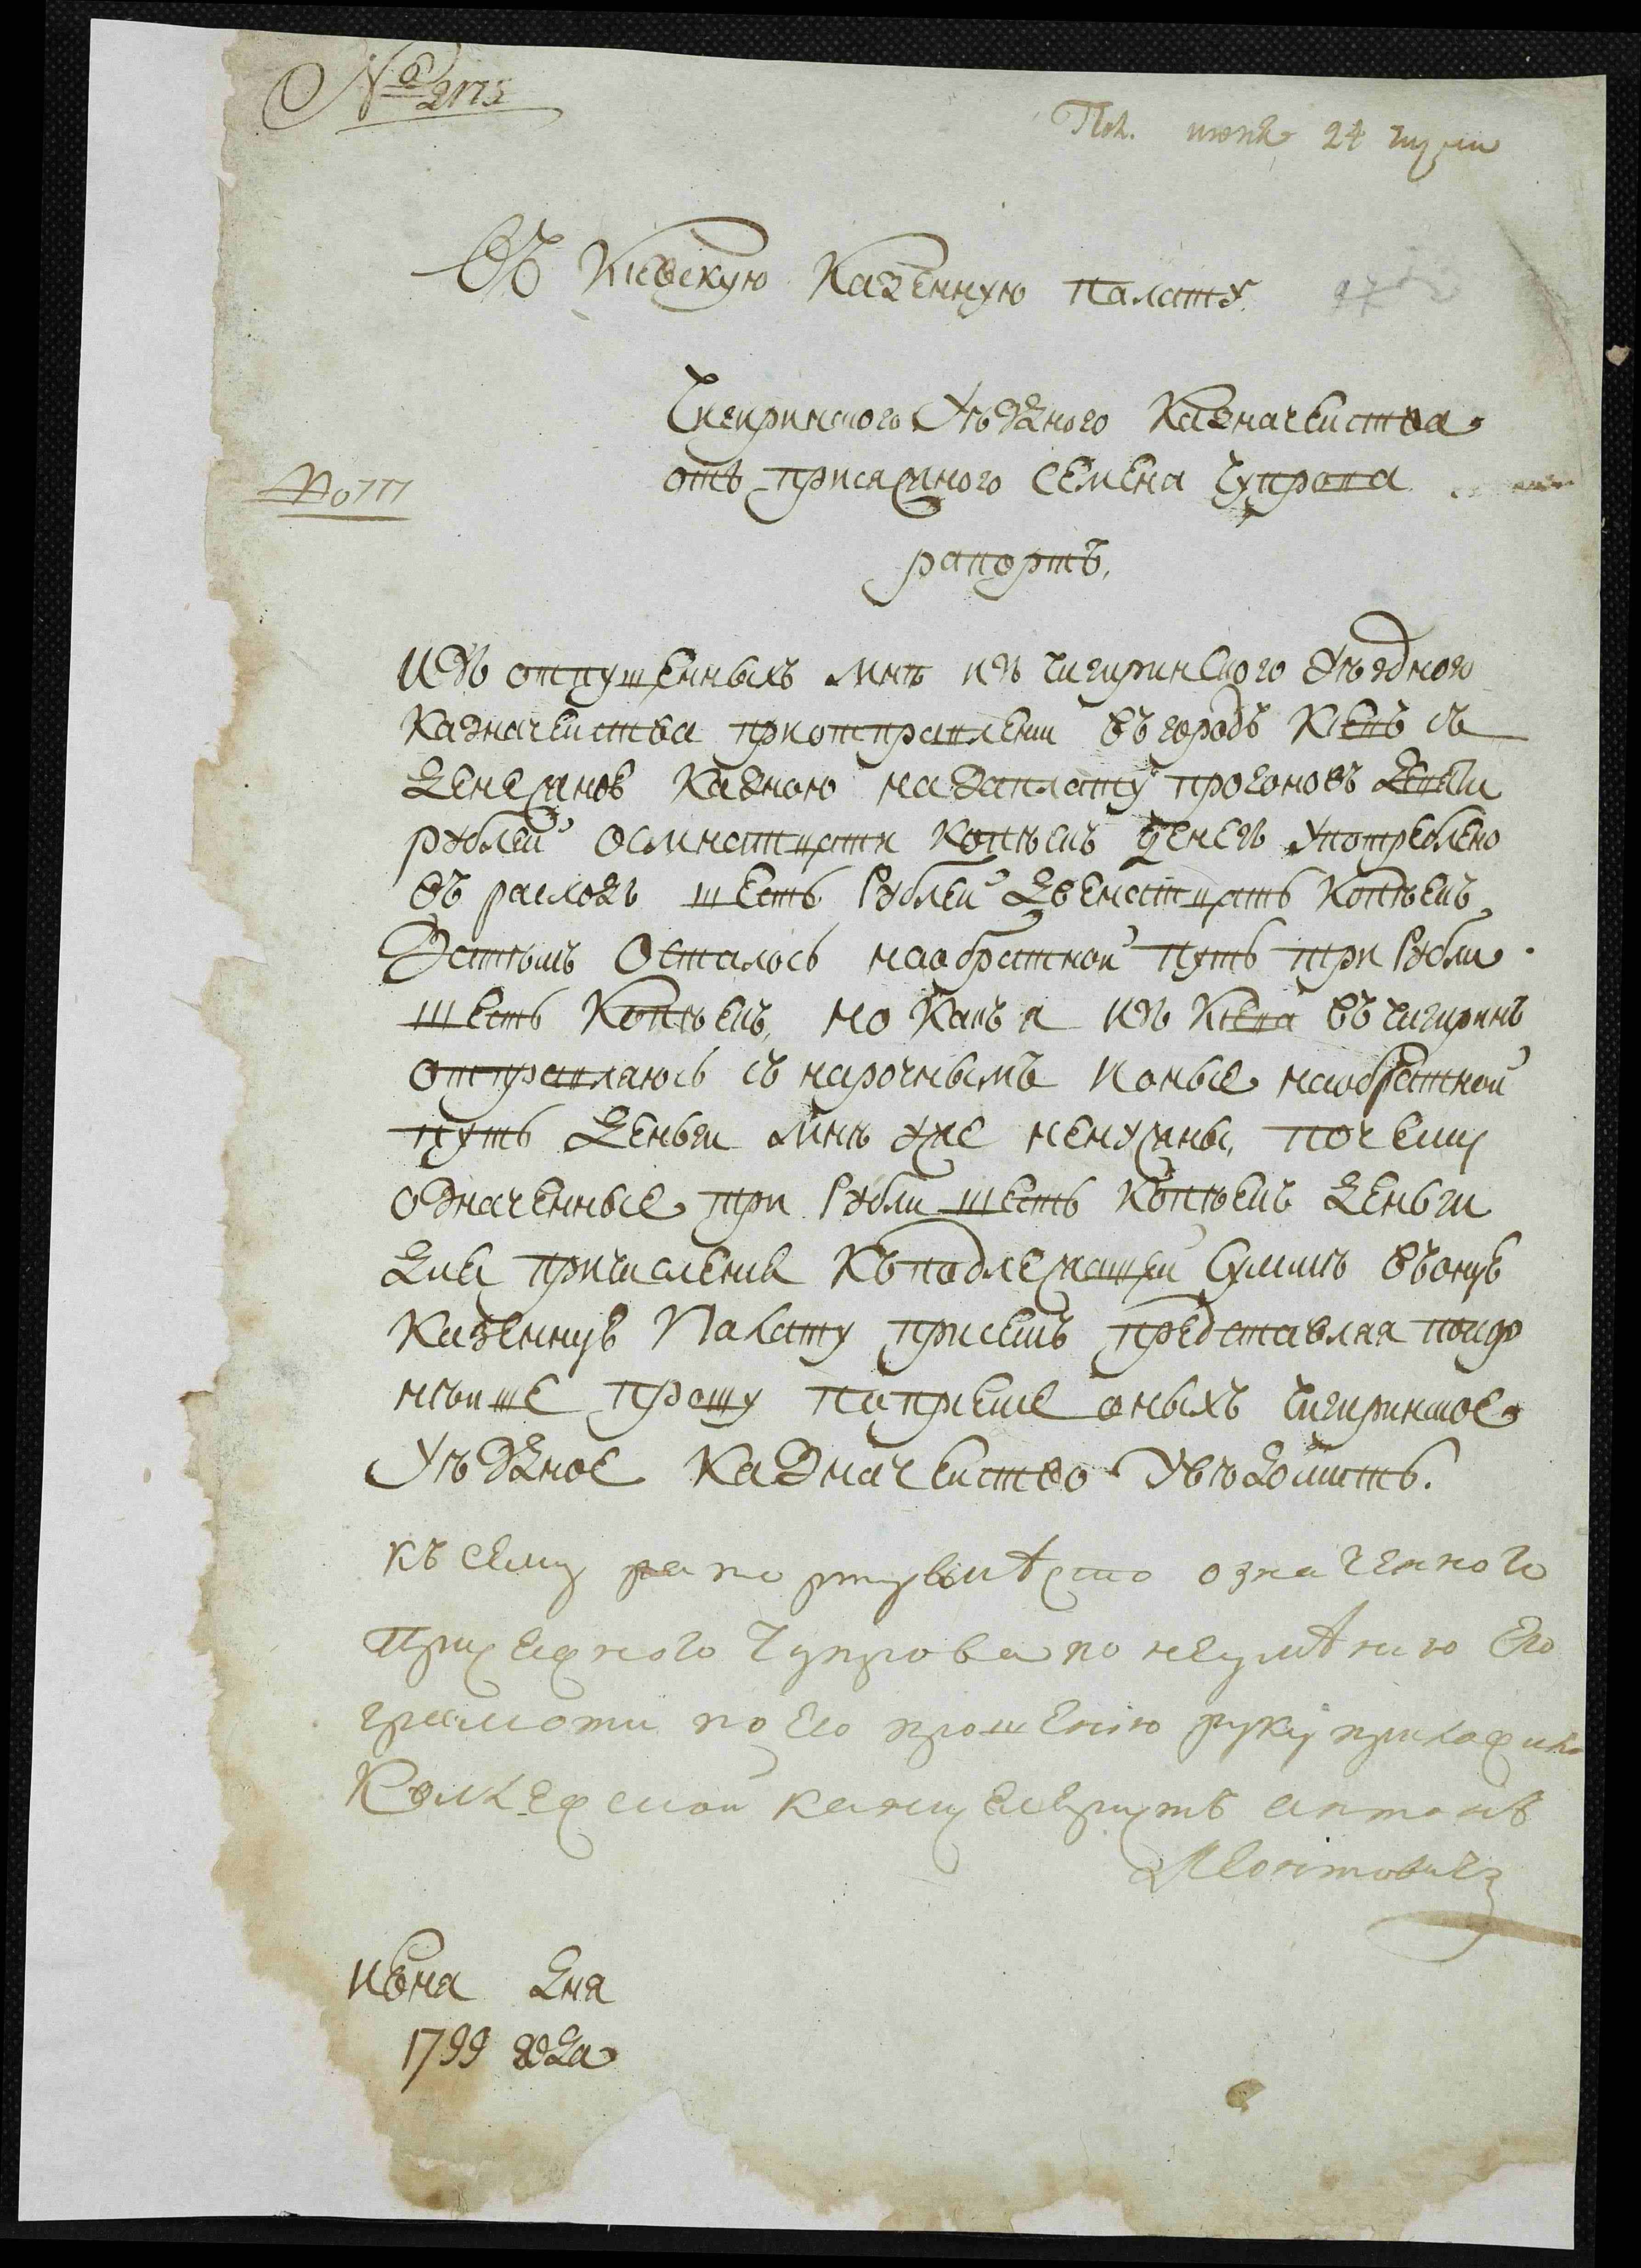 № 2175
Пол. июня 24 числа
Въ Киевскую Казенную палату
97
Чигиринского Уѣздного Казначейства
отъ присяжного Семена Чупрова
№ 777
рапортъ,
Изъ отпущенныхъ мнѣ изъ чигиринского Уѣздного
Казначейства приотправлении въ городъ Киевъ съ
денежною Казною назаплату прогоновъ девяти
рублей осмнатцати копѣекъ денегъ употреблено
въ расходъ шесть рублей двенатцать копѣекъ
Затѣмъ Осталось наобратной путь три рубли
шесть Копѣекъ, но какъ я изъ Киева въ чигиринъ
отправляюсь съ нарочнымъ и оные наобратной
путь деньги мнѣ уже ненужны, почему
означенные три рубли шесть копѣекъ деньги
для причисления къ подлежащей суммѣ въ оную
Казенную Палату присемъ представляя покор
нѣйше прошу поприеме оныхъ чигиринское
Уѣздное Казначейство Увѣдомить.
къ сему рапорту вмѣсто означенного
присяжного Чупрова по неумѣнию его
грамоти по его прошению руку приложилъ
Колежской канцеляристъ антонъ
Июня дня
1799 года